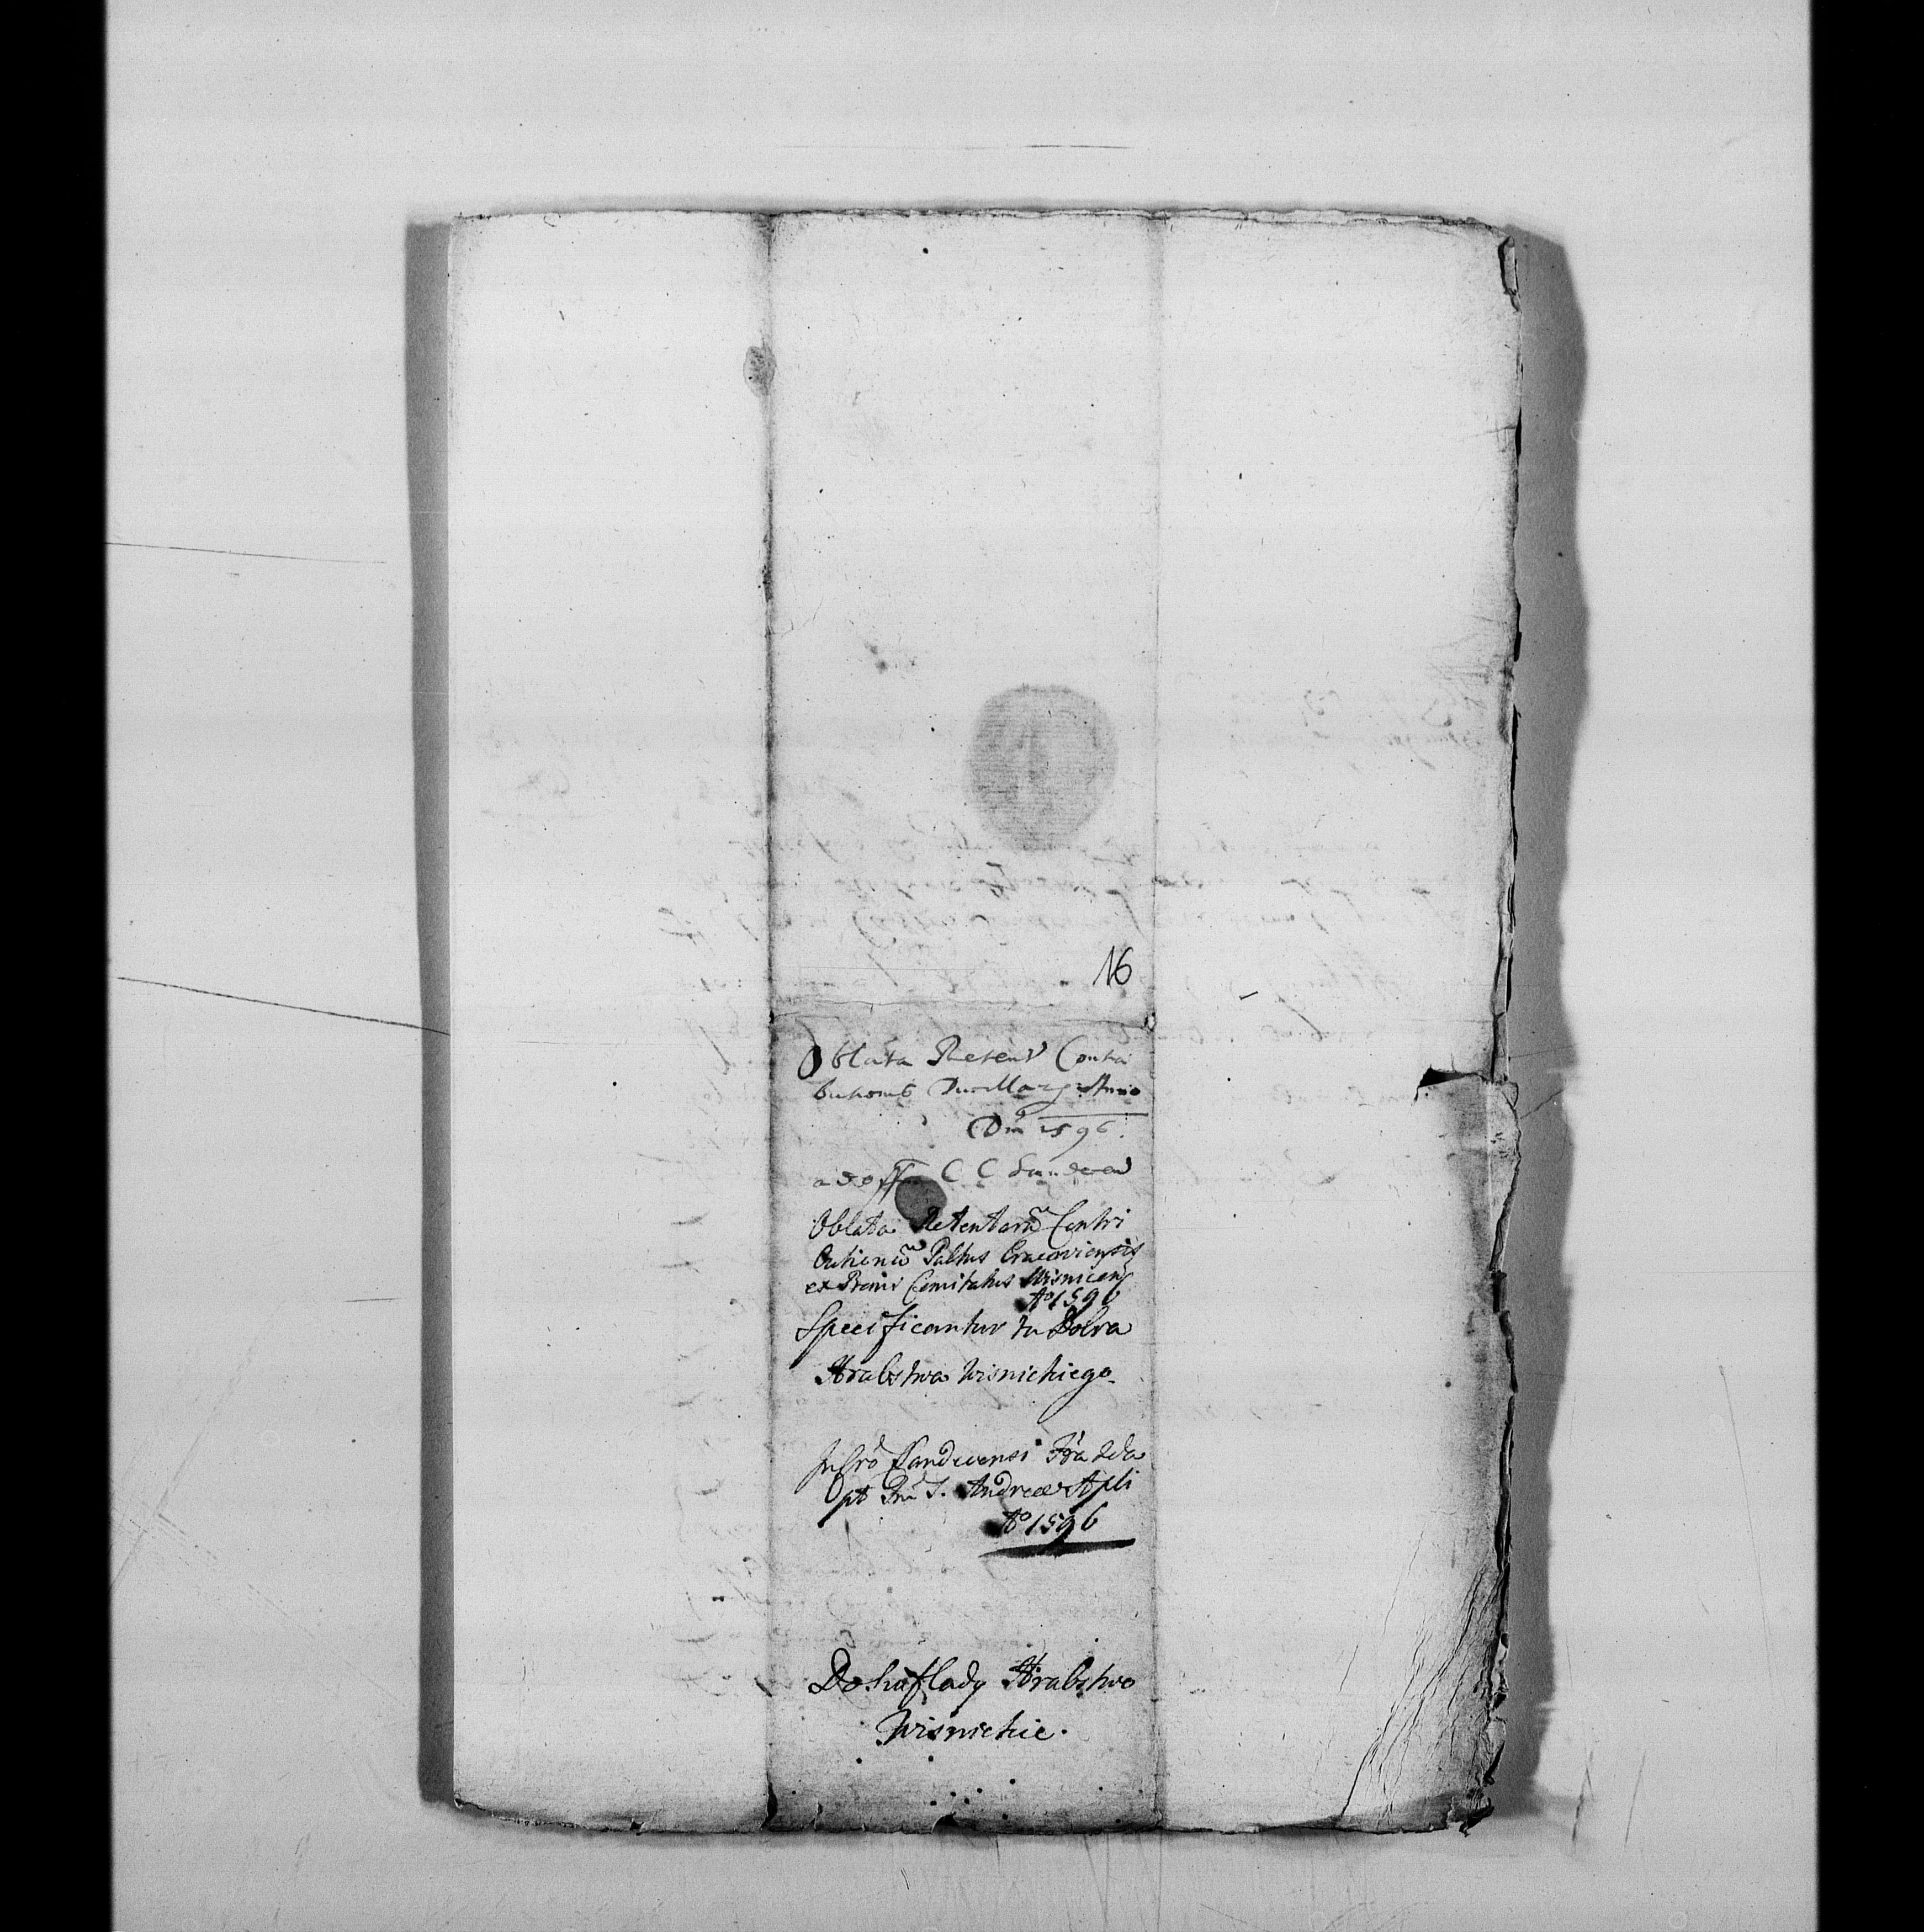 16
Oblata Retent Contri
butionis Anno
Dni 1596.
ad off C C Sandecen
Oblata Retentarũ Contri
butionũ Paltus Cracoviensis
ex Bonis Comitatus Wisnicens
Aº 1596
Specificantur tu Dobra
Hrabstwa Wisnickiego.
In Cro Sandecensi Fra 2da
pt Fm S. Andreae Apli
Aº 1596
Do Szuflady Hrabstwo
Wisnickie.